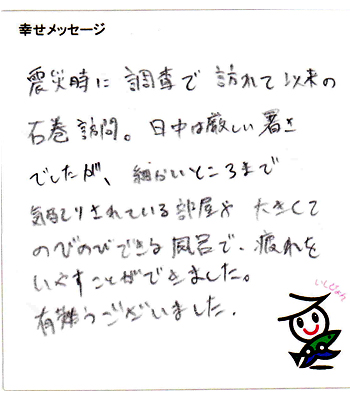 幸せメッセージ
震災時に調査で訪れて以来の
石巻訪問。日中は厳しい暑さ
でしたが、細かいところまで
気配りされている部屋や大きくて
のびのびできる風呂で、疲れを
いやすことができました。
有難うございました.
いしぴょん